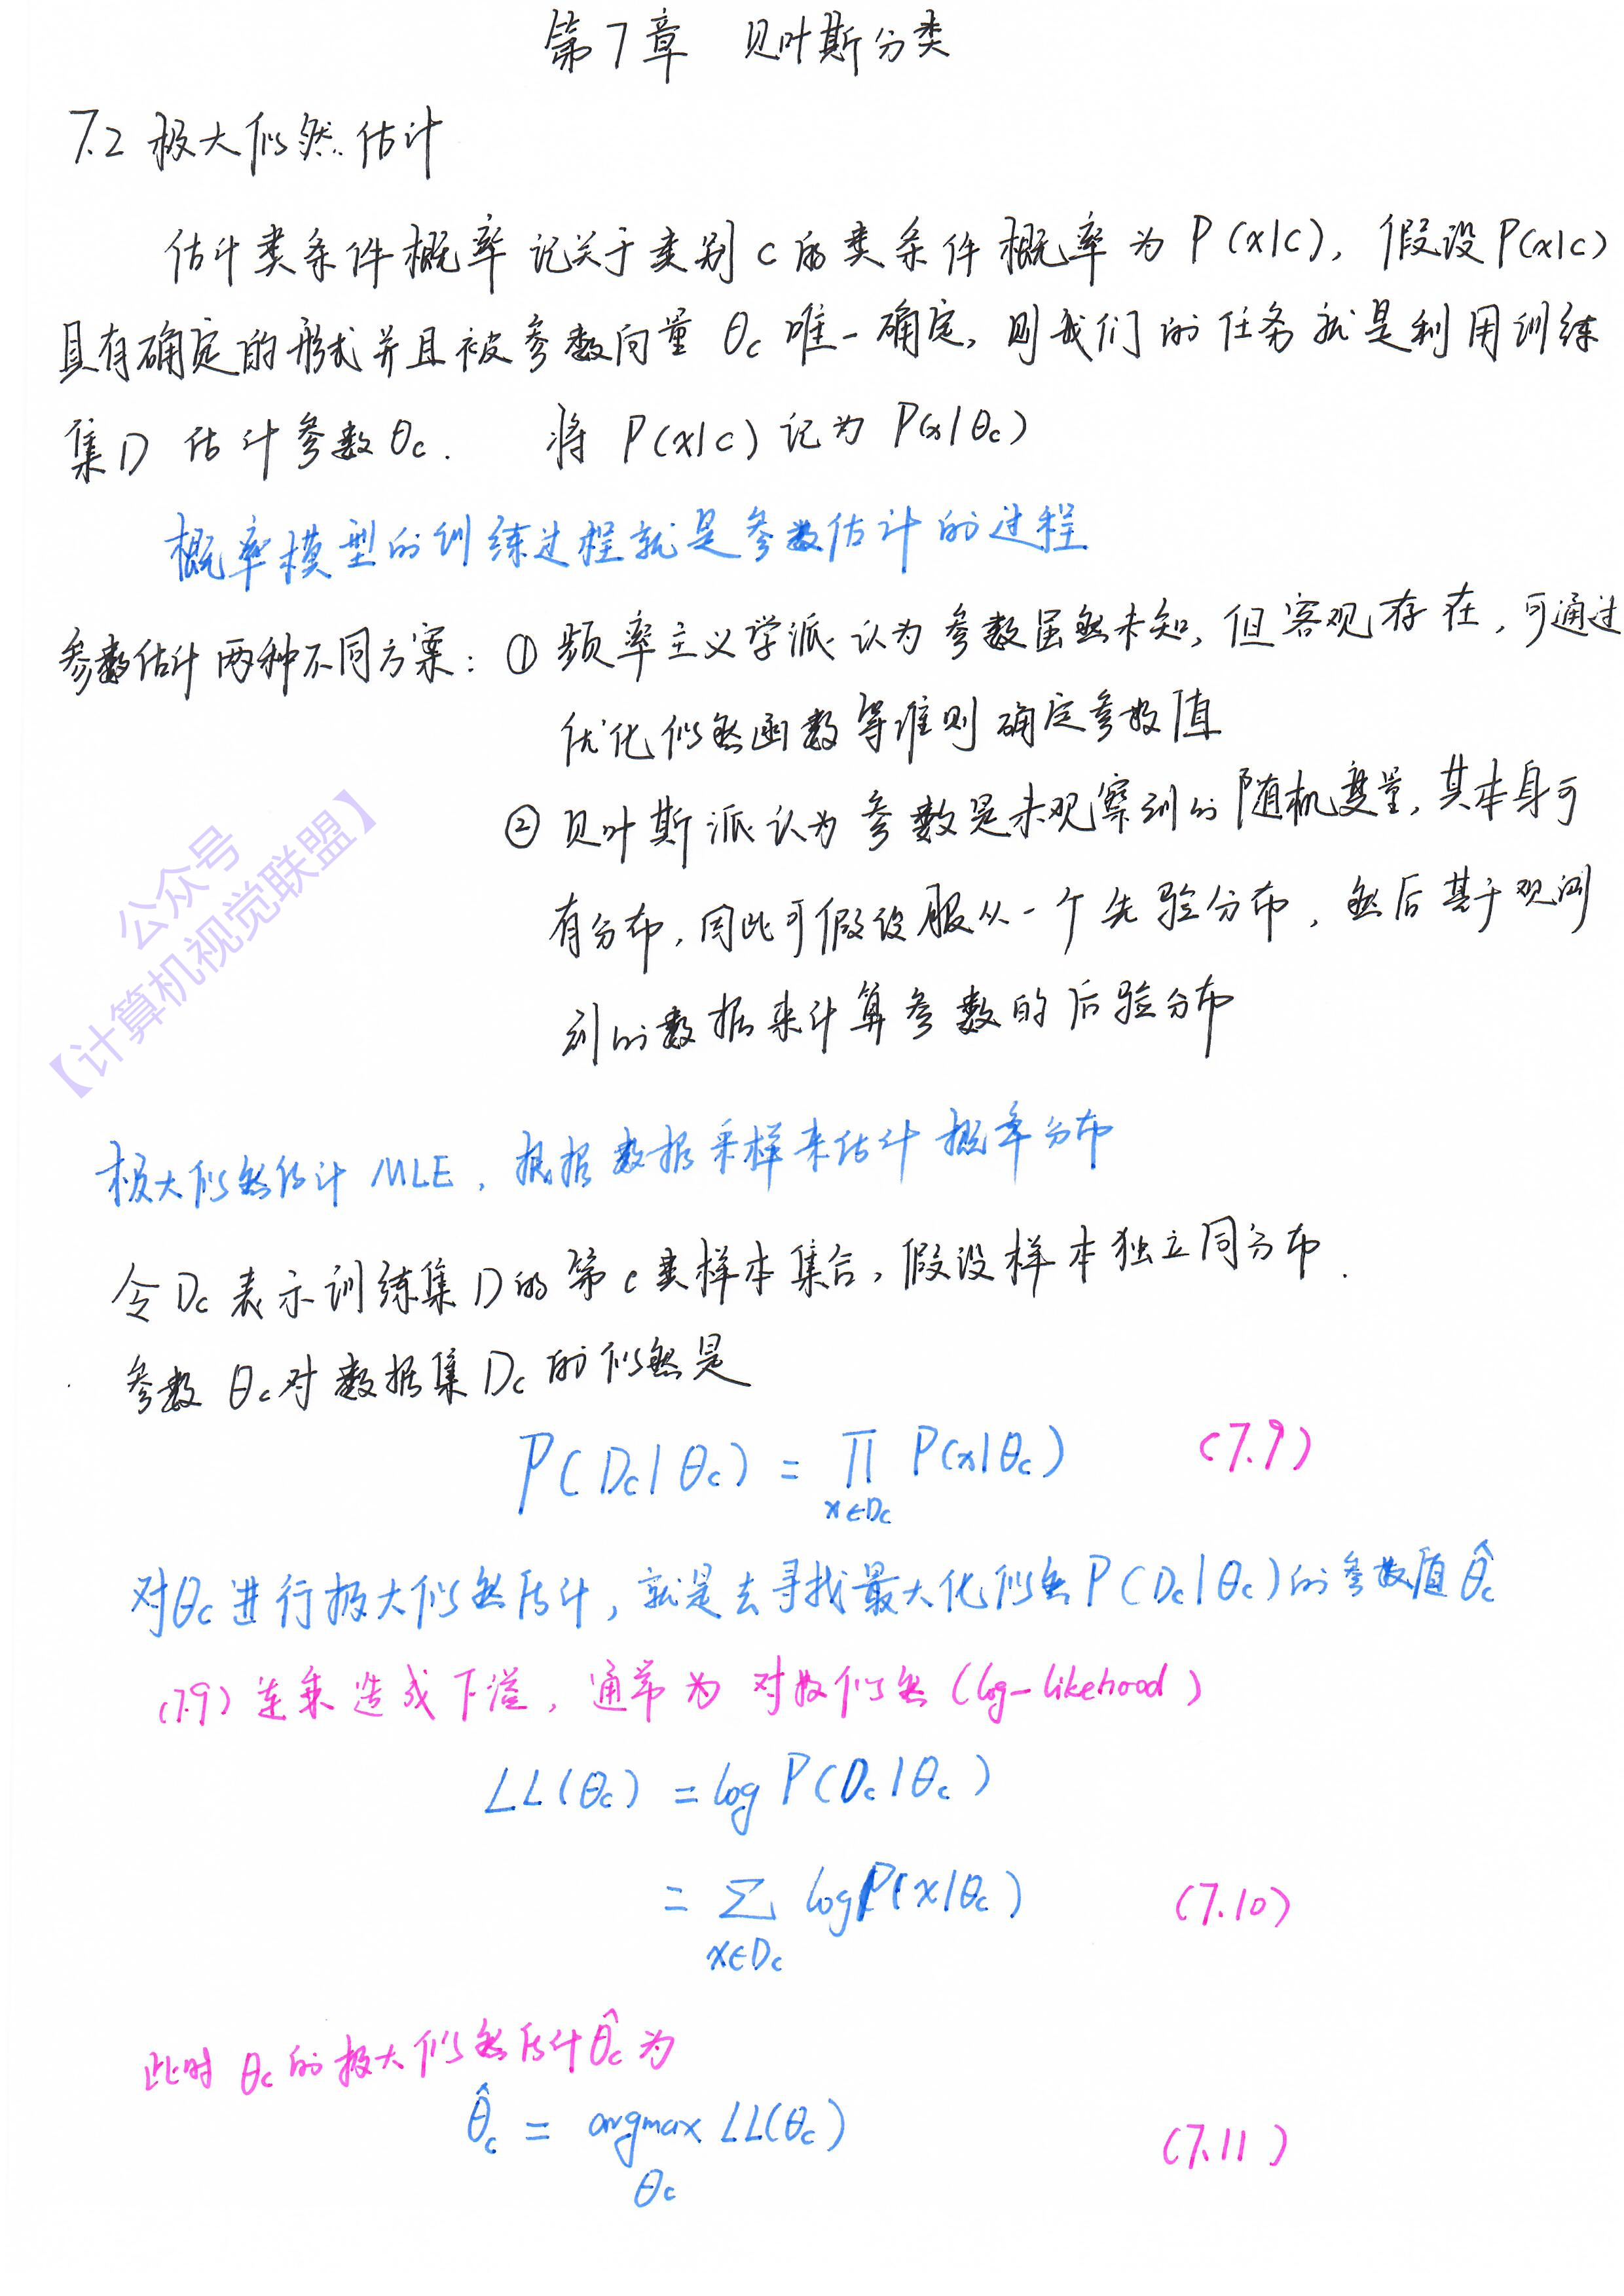 第7章 贝叶斯分类
7.2 极大似然估计
估计类条件概率 记关于类别 c 的类条件概率为 P(x|c), 假设 P(x|c)
具有确定的形式并且被参数向量 θc 唯一确定, 则我们的任务就是利用训练
集D 估计参数θc. 将 P(x|c) 记为 P(x|θc)
概率模型的训练过程就是参数估计的过程
参数估计两种不同方案: ① 频率主义学派认为参数虽然未知, 但客观存在, 可通过
优化似然函数等准则确定参数值
② 贝叶斯派认为参数是未观察到的随机变量, 其本身可
有分布, 因此可假设服从一个先验分布, 然后基于观测
到的数据来计算参数的后验分布
公众号
【计算机视觉联盟】
极大似然估计 MLE, 根据数据采样来估计概率分布
令 Dc 表示训练集D的第c类样本集合, 假设样本独立同分布.
参数 θc对数据集Dc的似然是
P(Dc|θc) = ∏ P(x|θc) (7.9)
x∈Dc
对θc进行极大似然估计, 就是去寻找最大化似然P(Dc|θc)的参数值 θ̂c
(7.9) 连乘造成下溢, 通常为 对数似然 (log-likehood)
LL(θc) = log P(Dc|θc)
= ∑ log P(x|θc) (7.10)
x∈Dc
此时 θc的极大似然估计θ̂c为
θ̂c = argmax LL(θc) (7.11)
θc